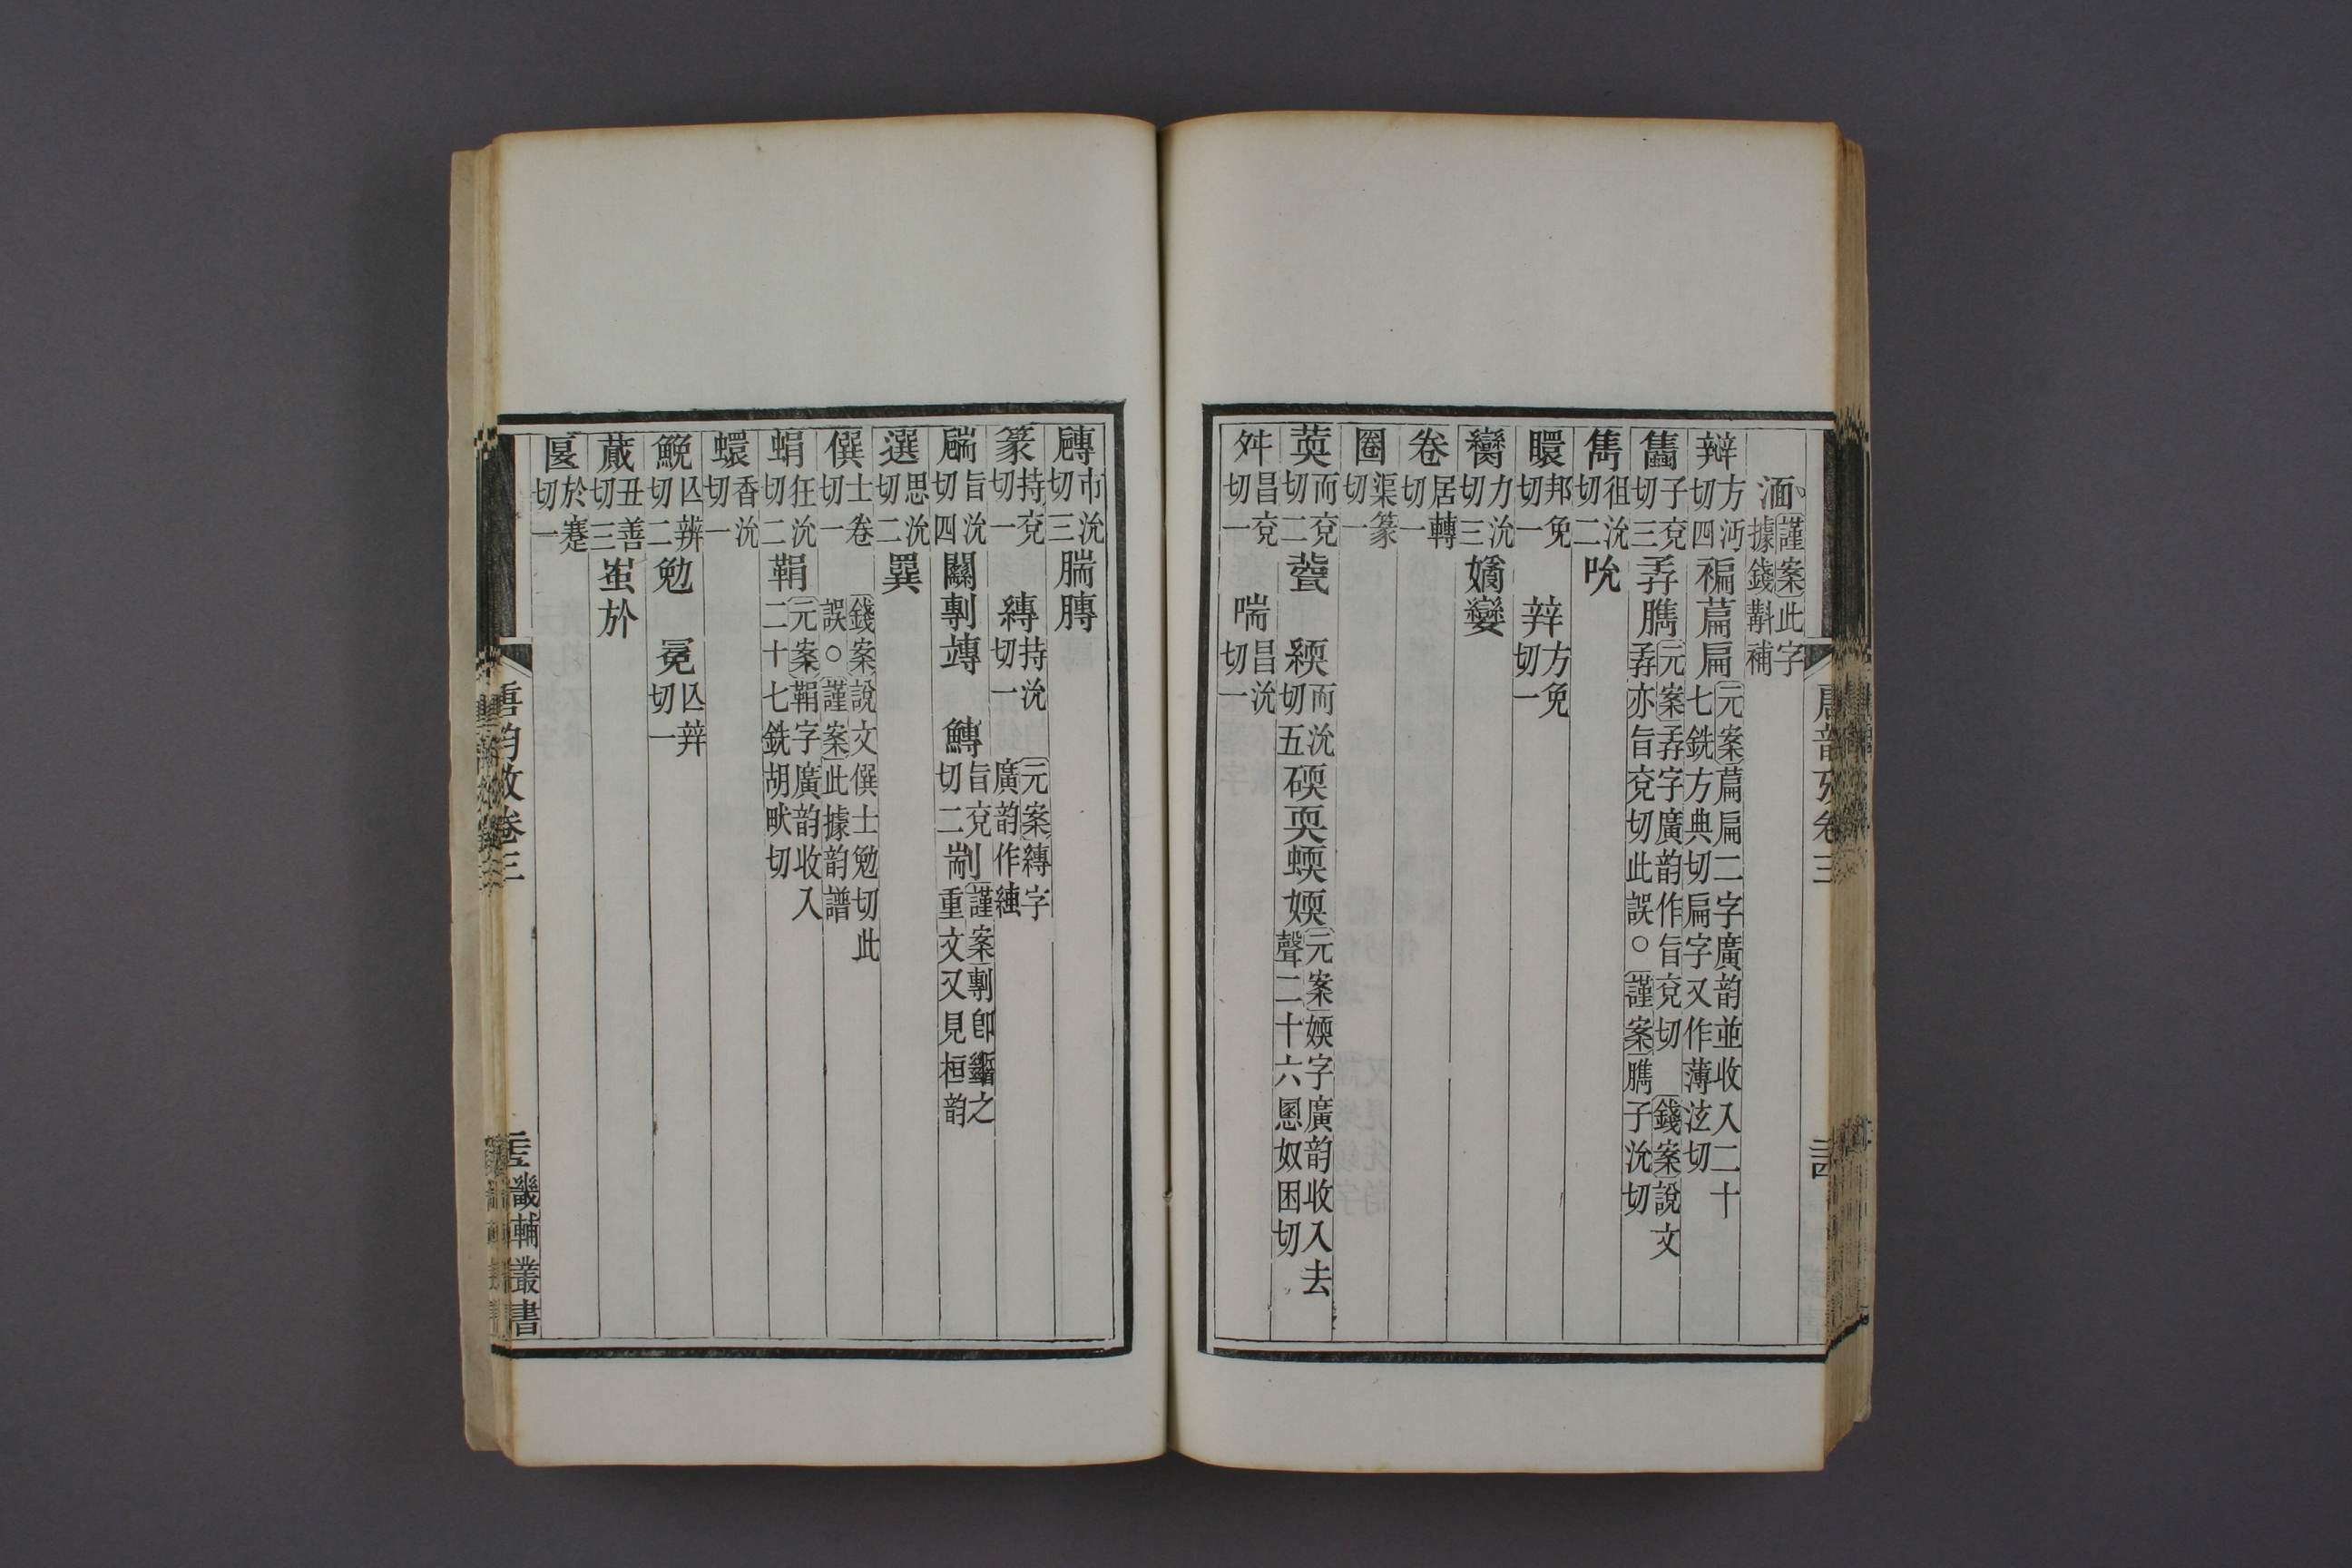 湎謹案此字據錢斠補
辡方沔切四褊萹扁元案萹扁二字廣韵並收入二十七銑方典切扁字又作薄泫切
雋子兗切三孨臇元案孨字廣韵作旨兗切 錢案說文孨亦旨兗切此誤○謹案臇子沇切
雋徂沇切二吮
䁵邦免切一 辡方免切一
臠力沇切三嫡孌
卷居轉切一
圈渠篆切一
䓴而兗切二㼱 緛而沇切五碝耎蝡媆元案媆字廣韵收入去聲二十六慁奴困切
舛昌兗切一 喘昌沇切一
唐韵攷卷三
膞市沇切三腨膊
篆持兗切一 縳持沇切一元案縳字廣韵作䋎
腨旨沇切四䦗剸竱 鱄旨兗切二耑刂謹案剸卽斷之重文又見桓韵
選思沇切二巽
僎士卷切一錢案說文僎士勉切此誤○謹案此據韵譜
蜎狂沇切二鞙元案鞙字廣韵收入二十七銑胡畎切
蠉香沇切一
鮸亾辨切二勉 冕亾辡切一
蕆丑善切三㞢㫃
匽於蹇切一
唐韵攷卷三
畿輔叢書